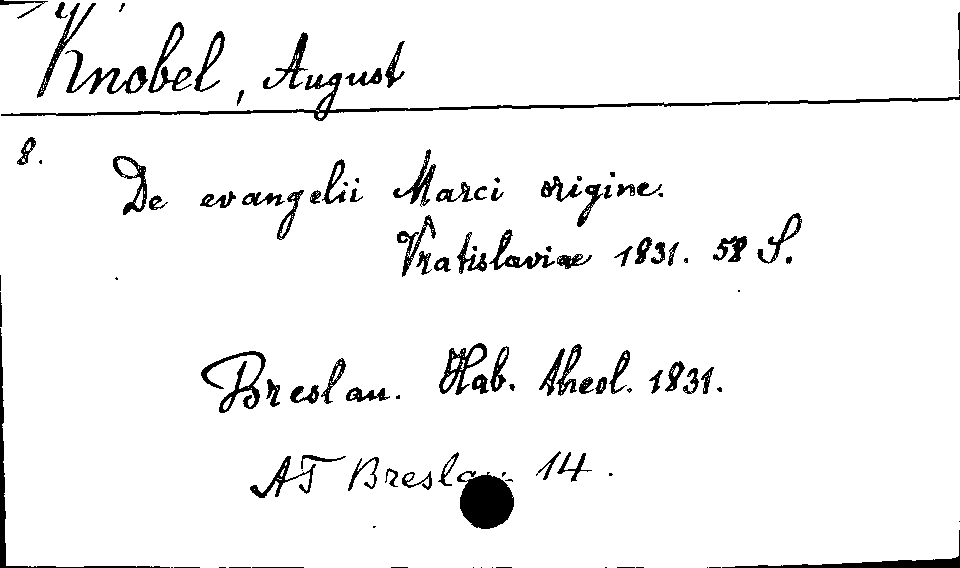 Knobel, August
8.
De evangelii Marci origine.
Vratislaviae 1831. 58 S.
Breslau. Hab. theol. 1831.
AT Breslau 14.